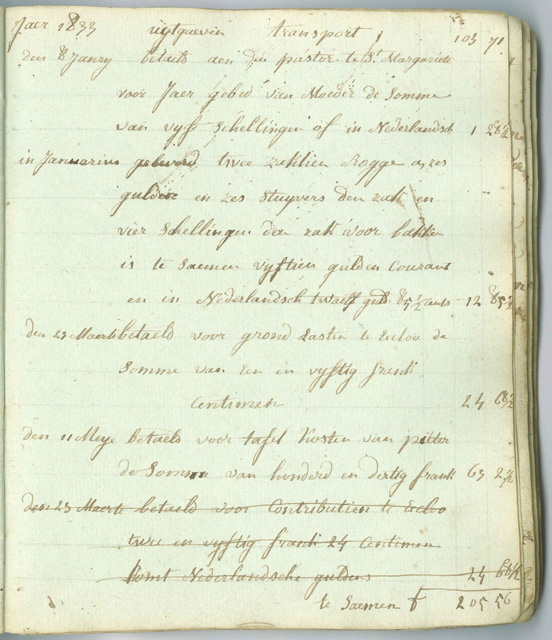 Jaer 1833 uytgaeven transport f 103 71
den 8 Janry betaelt aen den pastor te St. Margariete
voor Jaer gebed van Moeder de Somme
van vyf Schellingen of in Nederlandsch 1 28½
in Januarius twee zakken Rogge a zes
gulden en zes Stuyvers den zak en
vier Schellingen den zak voor bakken
is te Saemen vyftien gulden Courant
en in Nederlandsch twaelf guls 85½ cents 12 85½
den 23 Maerti betaeld voor grond Lasten te Eecloo de
Somme van een en vyftig frank
Centimen 24 68½
den 11 Meye betaeld voor tafel Kosten van pitter
de Somme van honderd en dertig frank 63 2½
den 23 Maerti betaeld voor Contributien te Eecloo
twee en vyftig frank 24 Centimen
komt Nederlandsche guldens 24 68½
te Saemen f 205 56